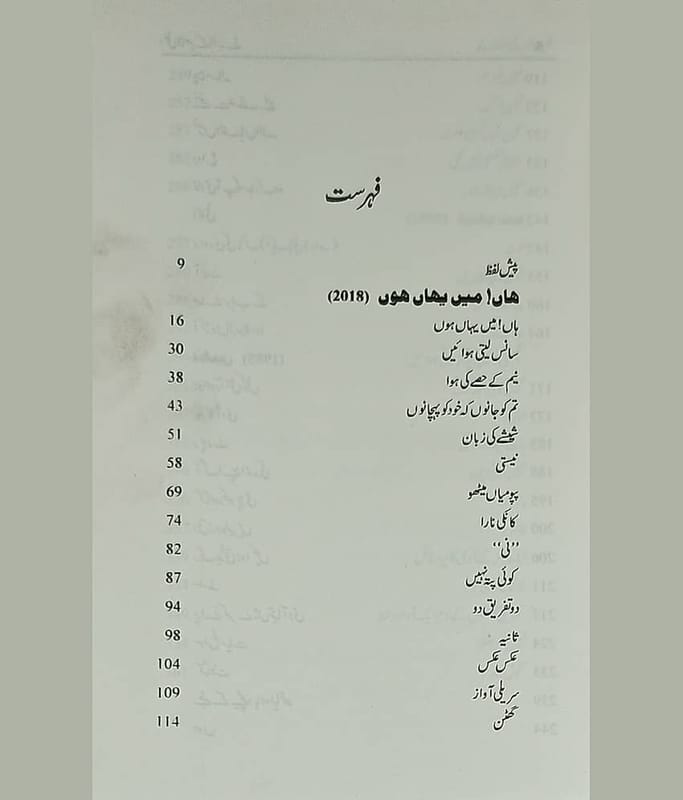 فہرست
پیش لفظ 9
ہاں! میں یہاں ہوں (2018)
ہاں! میں یہاں ہوں 16
سانس لیتی ہوائیں 30
نیم کے حصے کی ہوا 38
تم کو جانوں کہ خود کو پہچانوں 43
شیشے کی زبان 51
نیستی 58
پپو میاں میٹھو 69
کانکی نارا 74
”نی“ 82
کوئی پتہ نہیں 87
دو تفریق دو 94
ثانیہ 98
عکس عکس 104
سریلی آواز 109
گھٹن 114